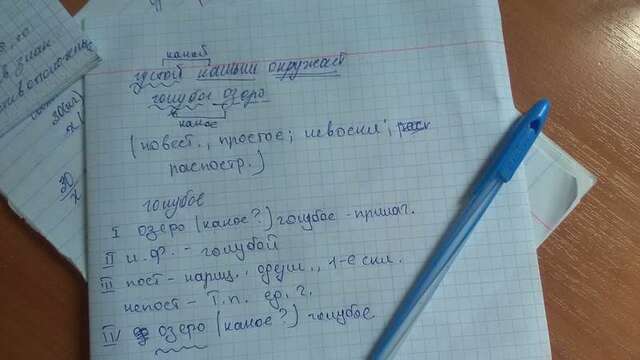 какой
густой камыш окружает
голубое озеро
какое
(повест., простое; невоскл.,
распостр.)
голубое
I озеро (какое?) голубое - прилаг.
II н.ф. - голубой
III пост - нариц., одуш., 1-е скл.
непост - Т.п. ед. ч.
IV озеро (какое?) голубое
30
x